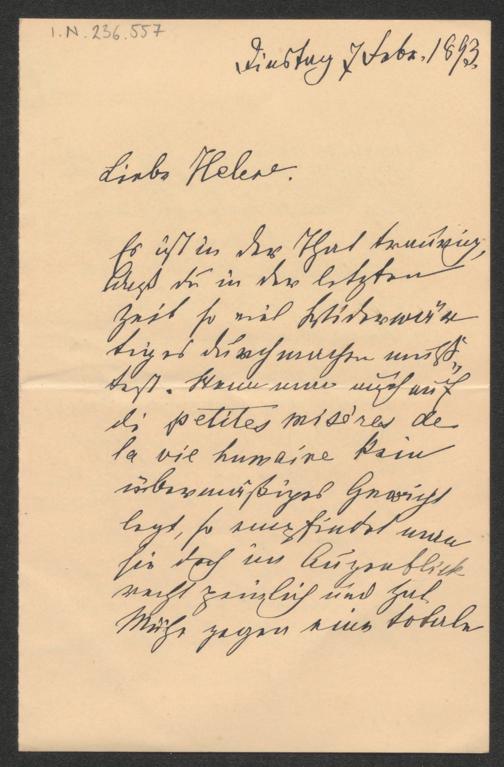 I.N. 236.557
Dinstag 7 Febr. 1893.
Liebe Helene.
Es ist in der That traurig,
daß du in der letzten
Zeit so viel Widerwär
tiges durchmachen muß-
test. Wenn man auch auf
di petites misères de
la vie humaine kein
übermäßiges Gewicht
legt, so empfindet man
sie doch im Augenblick
recht peinlich und hat
Mühe gegen eine totale